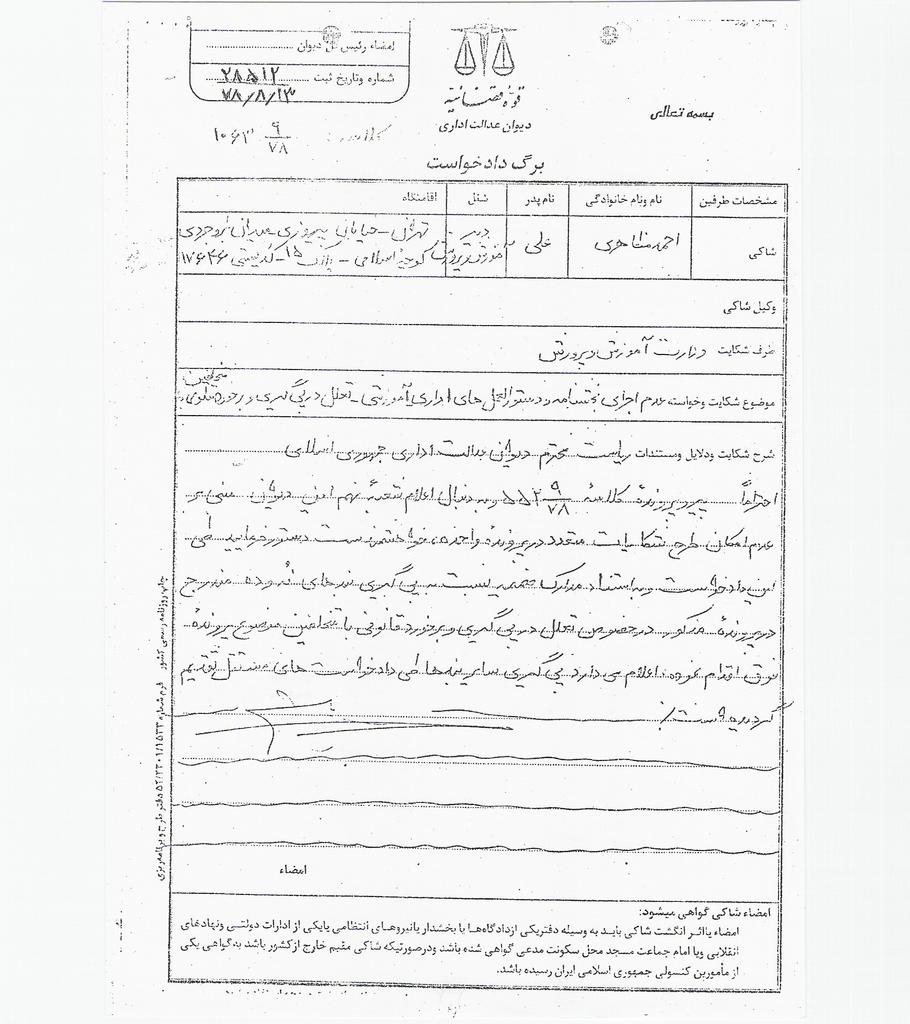 امضاء رئیس کل دیوان
شماره وتاریخ ثبت ۲۸۵۱۲
۷۸/۸/۱۳
قوهٔ قضائیه
دیوان عدالت اداری
بسمه تعالی
کلاسه: ۹/۷۸ ۱۰۶۳
برگ دادخواست
مشخصات طرفین نام ونام خانوادگی نام پدر شغل اقامتگاه
شاکی احمد مظاهری علی دبیر آموزش و پرورش تهران - خیابان پیروزی - میدان بروجردی
کوچه اسلامی - پلاک ۱۵ - کدپستی ۱۷۶۴۶
وکیل شاکی
طرف شکایت وزارت آموزش و پرورش
موضوع شکایت وخواسته عدم اجرای بخشنامه و دستورالعمل های اداری آموزشی - تعلل در پی گیری و برخورد قانونی با متخلفین
شرح شکایت ودلایل ومستندات ریاست محترم دیوان عدالت اداری جمهوری اسلامی
احتراماً پیرو پروندهٔ کلاسهٔ ۹/۷۸ ۵۵۲ و به دنبال اعلام شعبهٔ نهم این دیوان مبنی بر
عدم امکان طرح شکایات متعدد در پروندهٔ واحده، خواهشمند است دستور فرمایید طی
این دادخواست و به استناد مدارک ضمیمه نسبت به پی گیری بندهای مندرج
در پروندهٔ مذکور در خصوص تعلل در پی گیری و برخورد قانونی با متخلفین موضوع پروندهٔ
فوق اقدام نموده، اعلام می دارد پی گیری سایر بندها طی دادخواست های مستقل تقدیم
گردیده است./
امضاء
امضاء شاکی گواهی میشود:
امضاء یااثر انگشت شاکی باید به وسیله دفتریکی ازدادگاه‌ها یا بخشدار یانیروهای انتظامی یایکی از ادارات دولتی ونهادهای
انقلابی ویا امام جماعت مسجد محل سکونت مدعی گواهی شده باشد ودرصورتیکه شاکی مقیم خارج ازکشور باشد به‌گواهی یکی
از مأمورین کنسولی جمهوری اسلامی ایران رسیده باشد.
چاپ روزنامه رسمی کشور فرم شماره ۵۲/۲۳۰۱/۱۵۳۳ دفتر طرح و برنامه‌ریزی